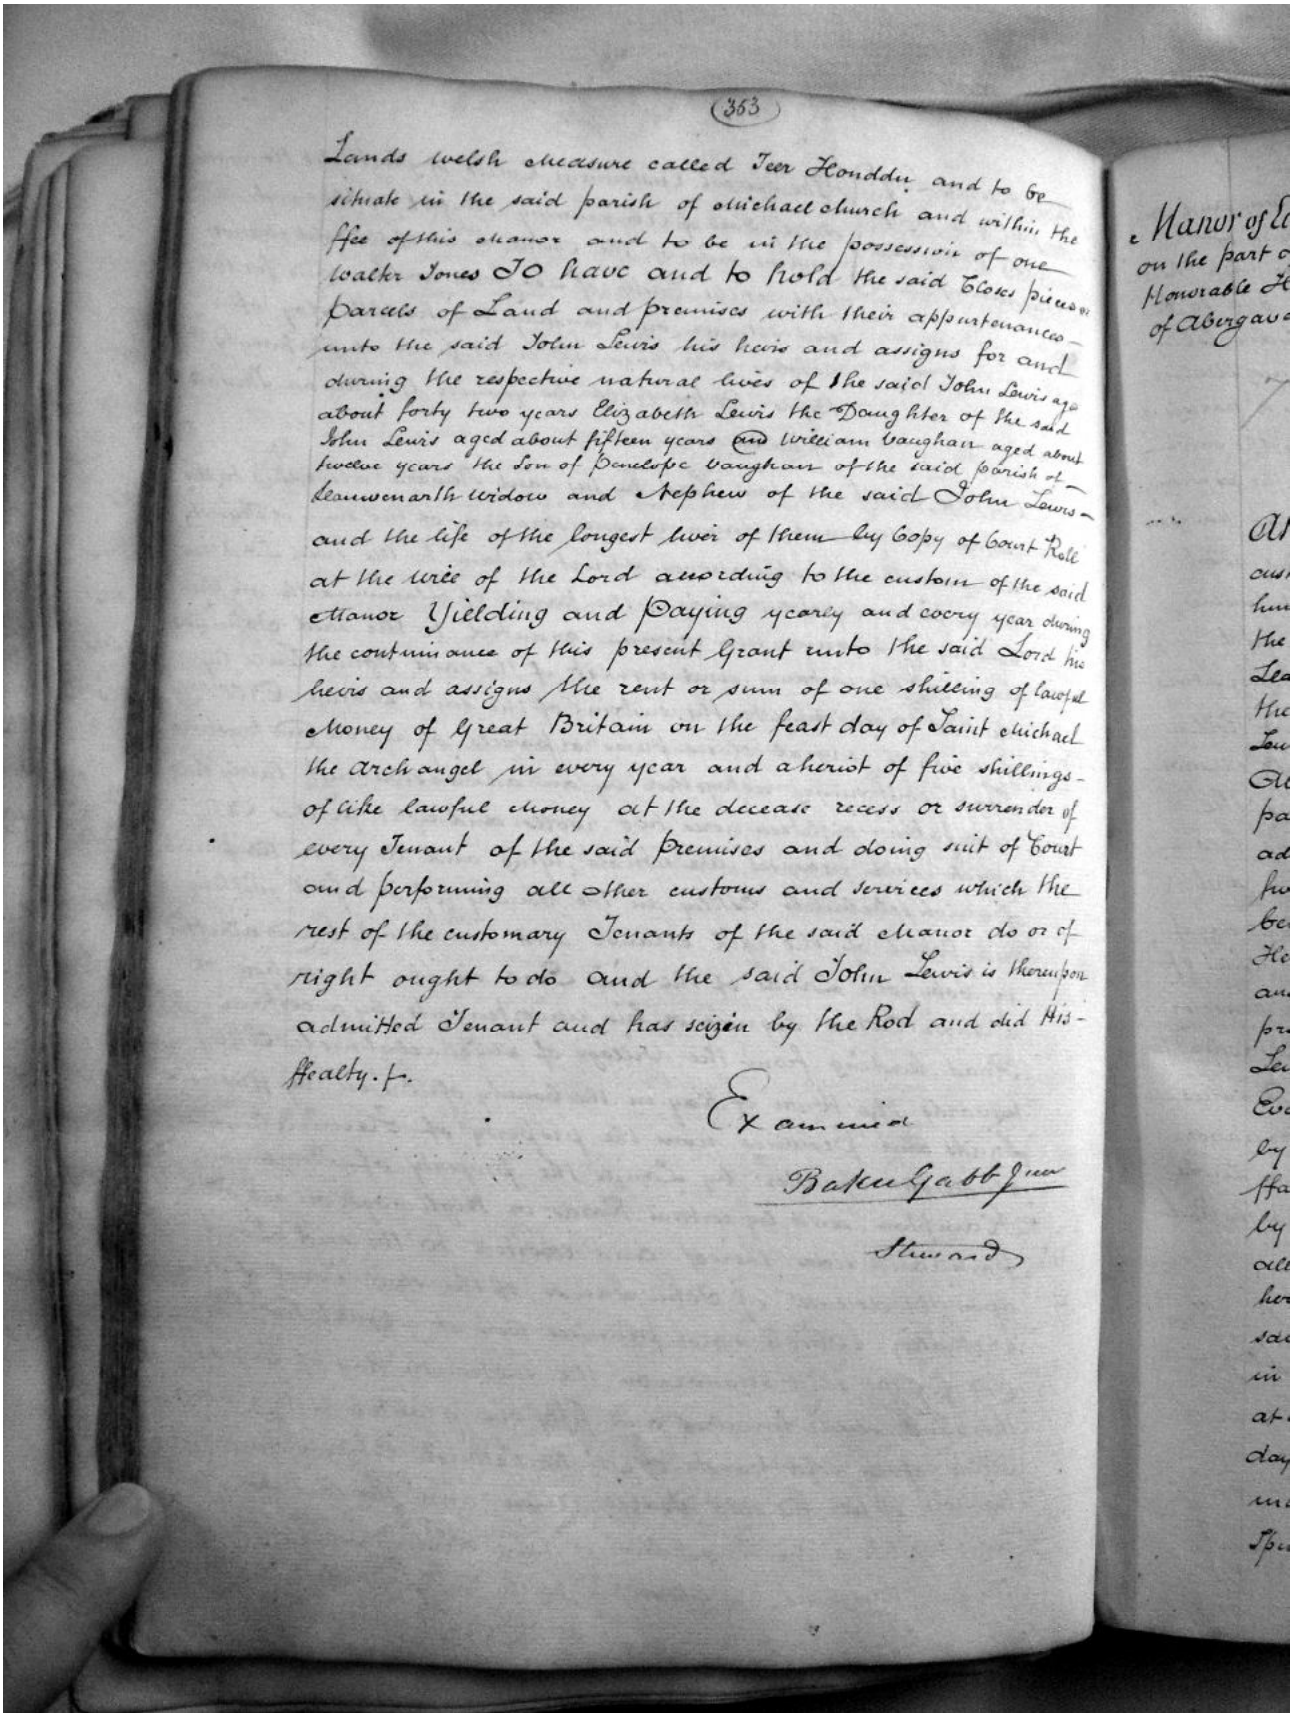 353
Lands welsh Measure called Teer Honddu and to be
situate in the said parish of Michaelchurch and within the
ffee of this Manor and to be in the possession of one
Walter Jones TO have and to hold the said Closes pieces or
parcels of Land and premises with their appurtenances
unto the said John Lewis his heirs and assigns for and
during the respective natural lives of the said John Lewis age
about forty two years Elizabeth Lewis the Daughter of the said
John Lewis aged about fifteen years and William Vaughan aged about
twelve years the Son of Penelope Vaughan of the said parish of
Llanwenarth widow and Nephew of the said John Lewis
and the life of the longest liver of them by Copy of Court Roll
at the will of the Lord according to the custom of the said
Manor Yielding and Paying yearly and every year during
the continuance of this present Grant unto the said Lord his
heirs and assigns the rent or sum of one shilling of lawful
Money of Great Britain on the feast day of Saint Michael
the Archangel in every year and a heriot of five shillings
of like lawful Money at the decease recess or surrender of
every Tenant of the said premises and doing suit of Court
and performing all other customs and services which the
rest of the customary Tenants of the said Manor do or of
right ought to do and the said John Lewis is thereupon
admitted Tenant and has seizin by the Rod and did His
ffealty.
Examined
Baker Gabb Junr
Steward
Manor of
on the part
Honorable
of
the
the
by
by
in
at